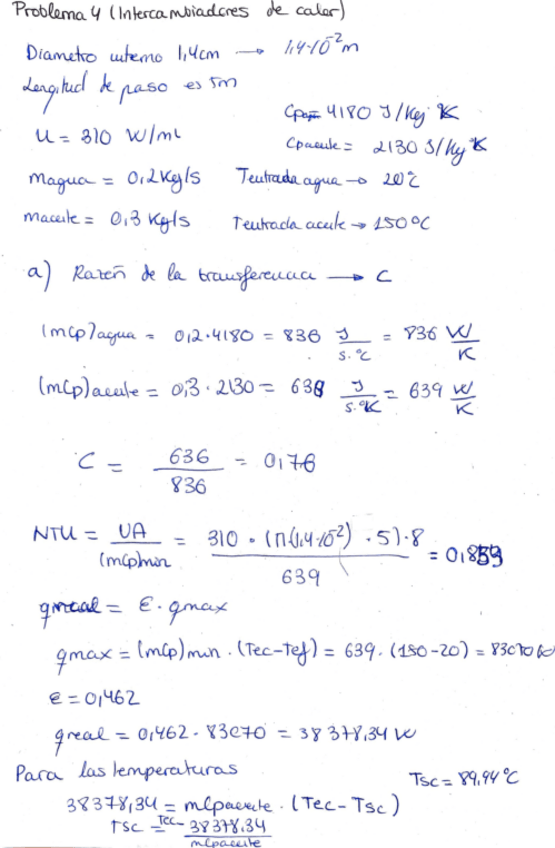 Problema 4 (Intercambiadores de calor)
Diametro interno 1,4cm → 1,4·10⁻²m
Longitud de paso es 5m
Cpag= 4180 J/Kg K
U = 310 W/m²
Cpaceite = 2130 J/Kg K
magua = 0,2 Kg/s Tentrada agua → 20°C
maceite = 0,3 Kg/s Tentrada aceite → 150°C
a) Razón de la transferencia → C
(mCp)agua = 0,2·4180 = 836 J/s·°C = 836 W/K
(mCp)aceite = 0,3·2130 = 639 J/s·°K = 639 W/K
C = 636/836 = 0,76
NTU = UA/(mCp)min = 310·(π(1,4·10⁻²)·5)·8/639 = 0,853
qreal = ε·qmax
qmax = (mCp)min·(Tec-Tef) = 639·(150-20) = 83070 W
e = 0,462
qreal = 0,462·83070 = 38378,34 W
Para las temperaturas
Tsc = 89,94°C
38378,34 = mCpaceite·(Tec-Tsc)
Tsc = Tec - 38378,34/mCpaceite